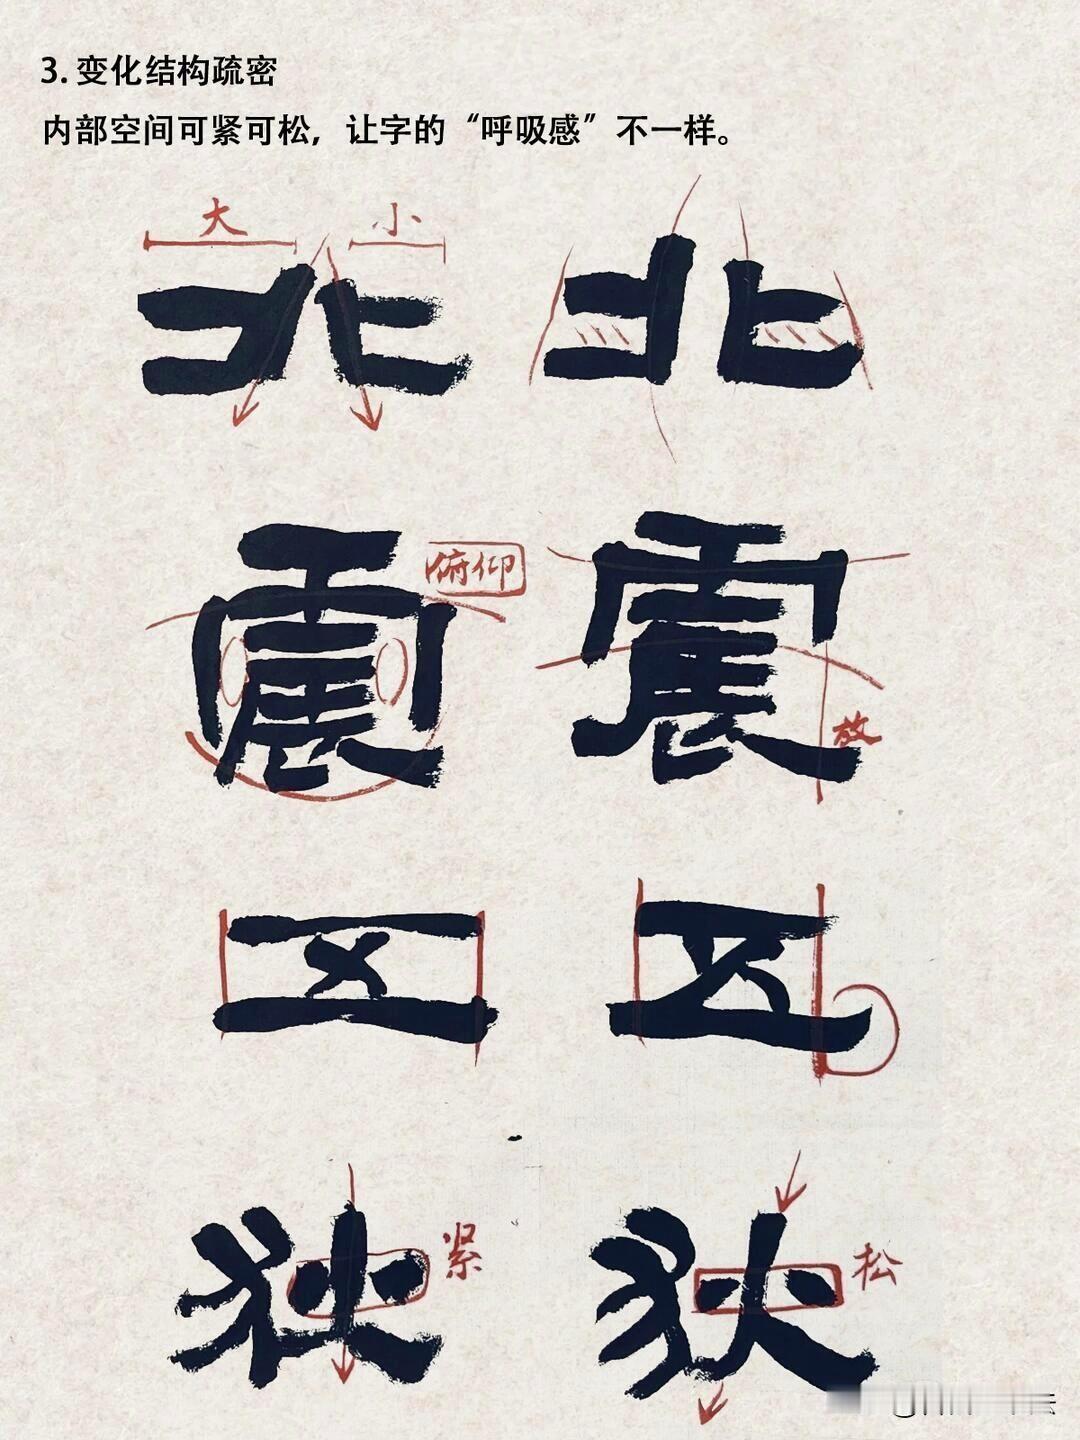 3. 变化结构疏密
内部空间可紧可松，让字的“呼吸感”不一样。
大 小
北 北
俯仰
震 震
放
五 五
狄 紧 狄 松